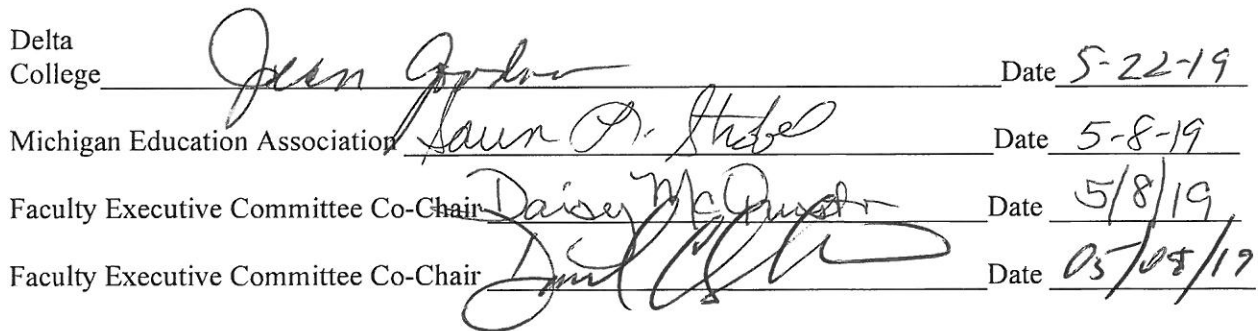 Delta
College Jean Goodnow Date 5-22-19
Michigan Education Association Date 5-8-19
Faculty Executive Committee Co-Chair Daisy McQuiston Date 5/8/19
Faculty Executive Committee Co-Chair Date 05/08/19